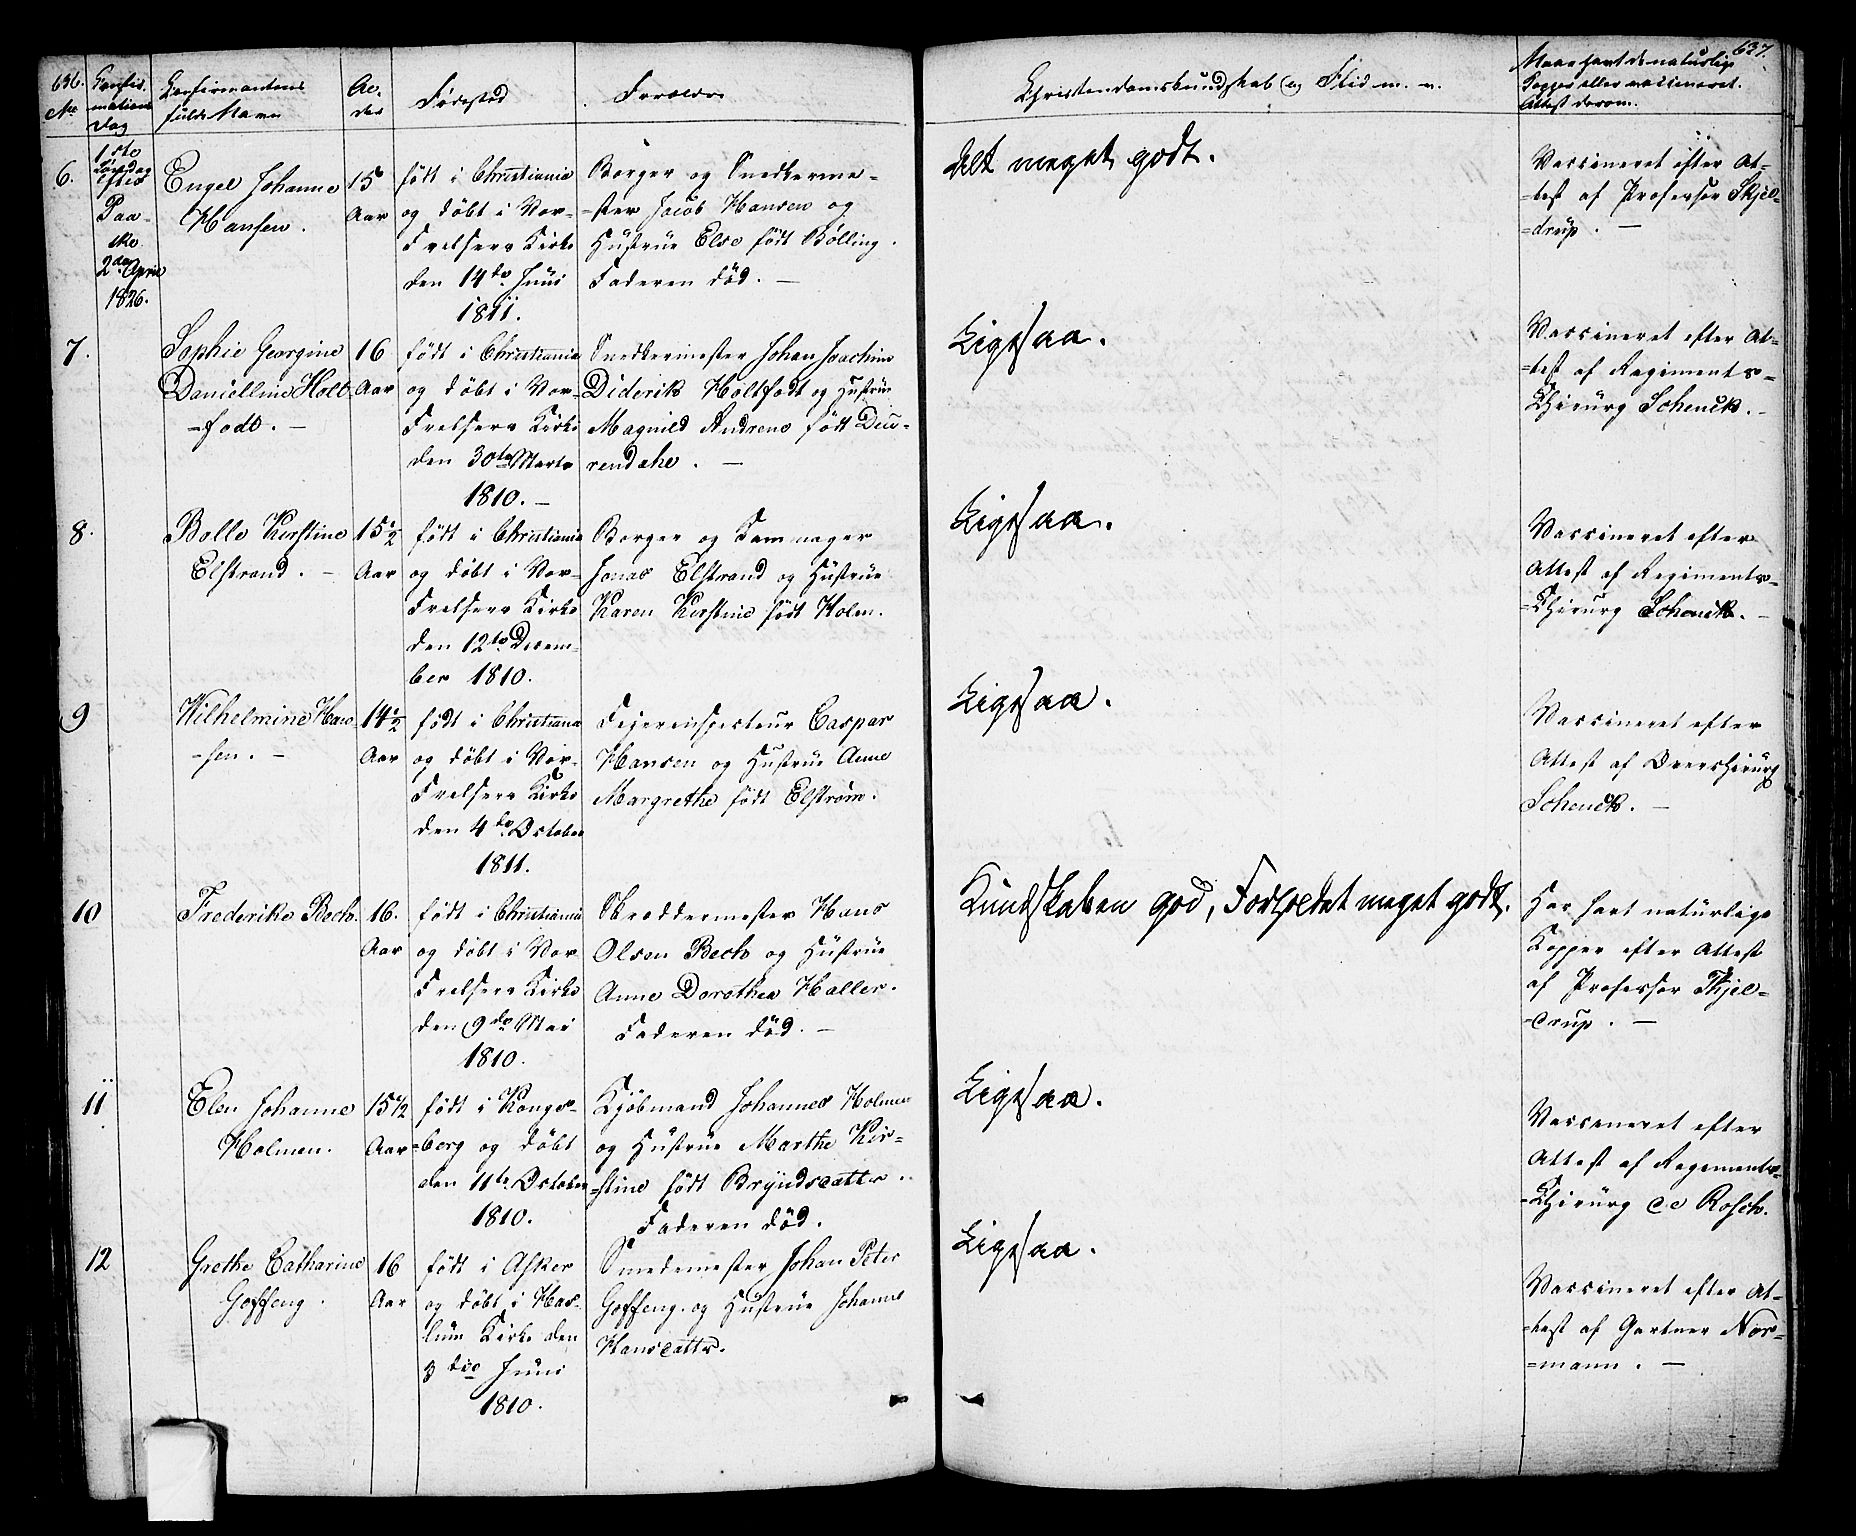 636.
No
Confir-
mations
Dag
Confirmantens
fulde Navn
Al-
der
Fødested
Forældre
6.
1ste
Søndag
efter
Paa-
ske
2den April
1826.
Engel Johanne
Hansen.
15
Aar
født i Christiania
og døbt i Vor-
Frelsers Kirke
den 14de Juni
1811.
Borger og Snedkerme-
-ster Jacob Hansen og
Hustrue Else født Bølling.
Faderen død. —
7.
Sophie Georgine
Danielline Holt-
-fodt. —
16
Aar
født i Christiania
og døbt i Vor-
Frelsers Kirke
den 30te Marts
1810. —
Snedkermester Johan Joachim
Diderik Holtfodt og Hustrue
Magnild Andrene født Diu-
rendahe. —
8.
Bolle Kirstine
Elstrand. —
15½
Aar
født i Christiania
og døbt i Vor-
Frelsers Kirke
den 12te Decem-
ber 1810.
Borger og
Jonas Elstrand og Hustrue
Karen Kirstine født Holen.
9
Wilhelmine Han-
-sen. —
14½
Aar
født i Christiania
og døbt i Vor-
Frelsers Kirke
den 4de October
1811.
Feierinspecteur Caspar
Hansen og Hustrue Anne
Margrethe født Elstrøm.
10
Frederike Bech.
16.
Aar
født i Christiania
og døbt i Vor
Frelsers Kirke
den 9de Mai
1810.
Skræddermester Hans
Olsen Bech og Hustrue
Anne Dorothea Haller.
Faderen død. —
11
Elen Johanne
Holmen.
15½
Aar
født i Kongs-
-berg og døbt
den 11te October
1810.
Kjøbmand Johannes Holmen
og Hustrue Marthe Kir-
-stine født Bryndsdattr.
Faderen død.
12
Grethe Catharine
Goffeng.
16
Aar
født i Asker
og døbt i Has-
lum Kirke den
3die Juni
1810.
Smedemester Johan Peter
Goffeng og Hustrue Johanne
Hansdattr.
637.
Christendomskundskab og Flid m. v.
Naar havt de naturlige
Kopper eller vaccineret.
Attest derom.
Alt meget godt.
Vaccineret efter At-
-test af Professor Skjel-
-drup. —
Ligesaa.
Vaccineret efter At-
-test af Regiments-
-Chirurg Schenck. —
Ligesaa.
Vaccineret efter
Attest af Regiments-
-Chirurg Schenck. —
Ligesaa.
Vaccineret efter
Attest af Overchirurg
Schenck. —
Kundskaben god, Forholdet meget godt.
Har havt naturlige
Kopper efter Attest
af Professor Skjel-
-drup. —
Ligesaa.
Vaccineret efter
Attest af Regiments-
-Chirurg de Rosch.
Ligesaa.
Vaccineret efter At-
-test af Gartner Nor-
-mann. —